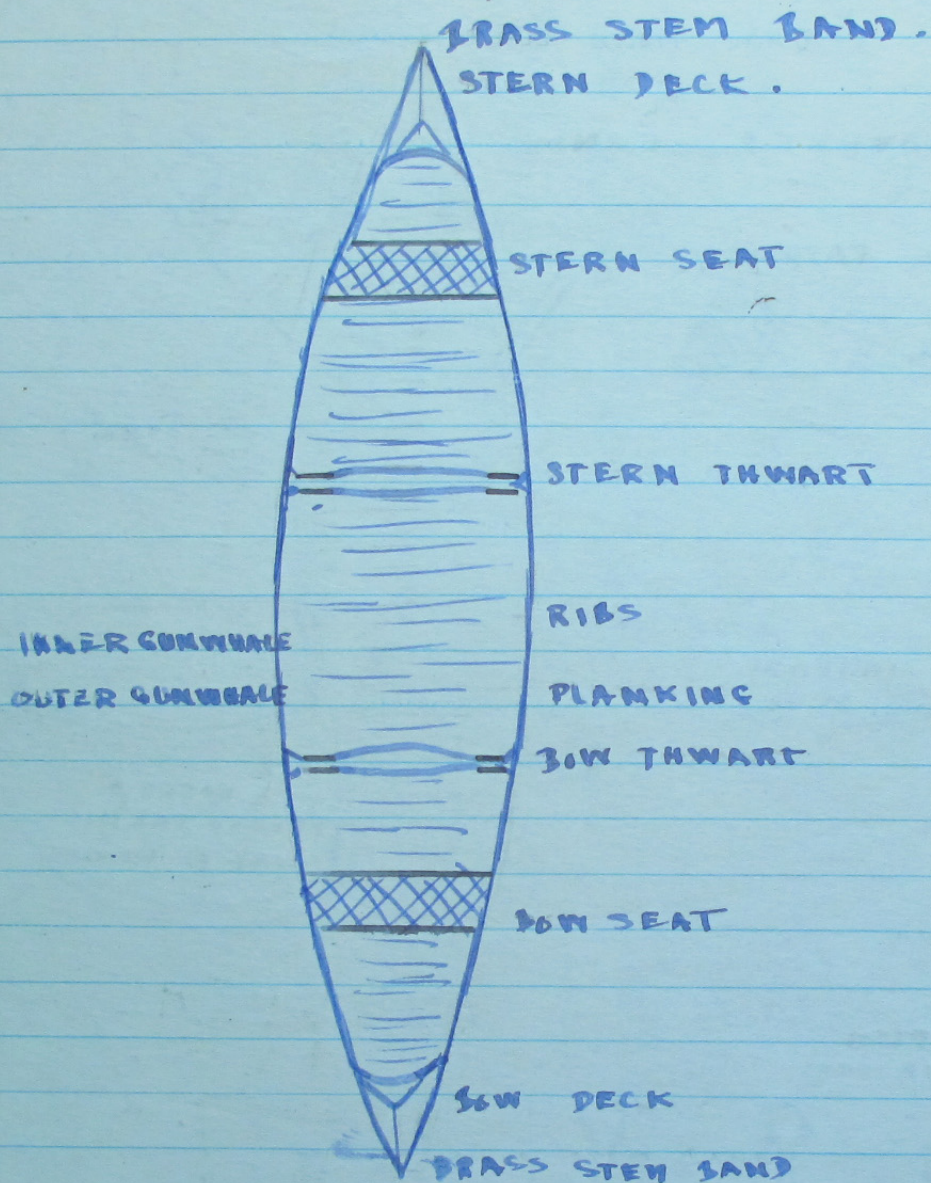 BRASS STEM BAND.
STERN DECK.
STERN SEAT
STERN THWART
RIBS
INNER GUNWHALE
OUTER GUNWHALE
PLANKING
BOW THWART
BOW SEAT
BOW DECK
BRASS STEM BAND